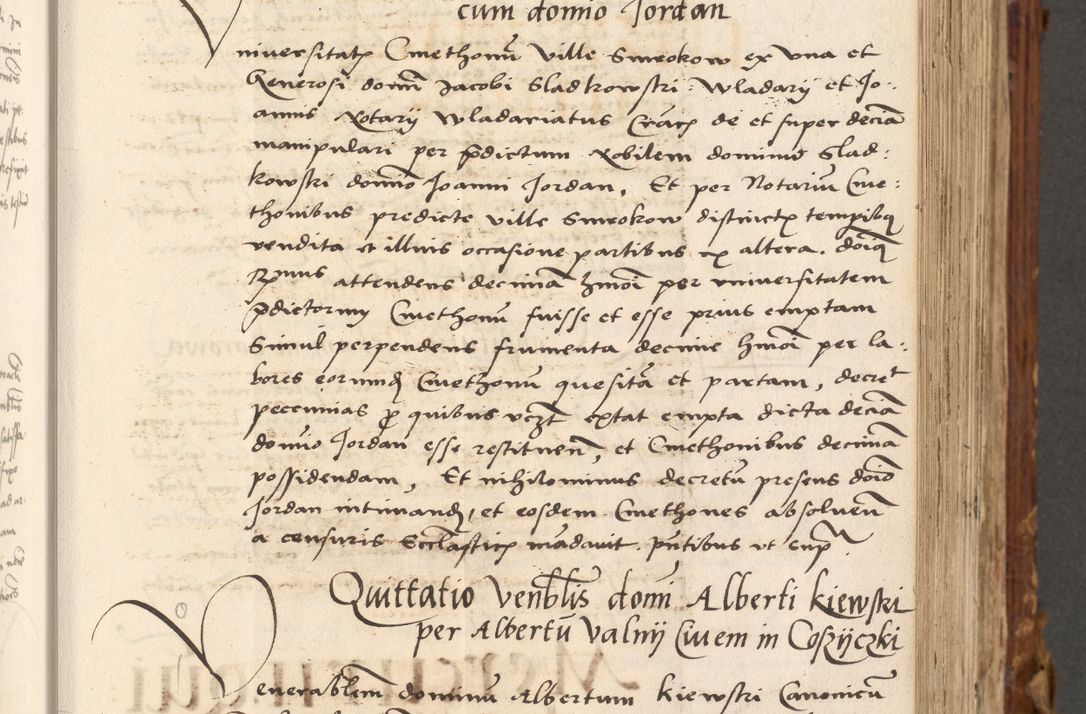 cum domio Jordan
Vniuersitatꝭ Cmethonū ville Smrokow ex vna et
Generosi domī Jacobi Sladkowski Wladarij et Jo:
annis Notarij Wladariatus Cracꝭ de et super deciā
manipulari per p̄dictum Nobilem dominū Slad:
kowski domio Joanni Jordan, Et per Notariū Cme:
thonibus predicte ville Smrokow distinctꝭ temporibꝫ
vendita et illius occasione partibus ex altera. doīqꝫ
Rmus attendens decimā hmōi per vniuersitatem
p̄dictorum Cmethonū fuisse et esse prius emptam
Simul perpendens frumenta decime hmōi per la:
bores eorundē Cmethonū quesitā et partam, decret
peccunias p̄ quibus vcꝫt extat empta dicta deciā
domio Jordan esse restituen̄, et Cmethonibus decimā
possidendam, Et nihilominus decretū presens doīo
Jordan intimandꝭ, et eosdem Cmethones absoluen̄
a censuris Ecclāsticꝭ mādauit. p̄ntibus vt supͣ
Quittatio Venbl̄is domī Alberti kiewski
per Albertū Valnij Ciuem in Coszyczki
Venerablēm dominū Albertum kiewski Canonicū